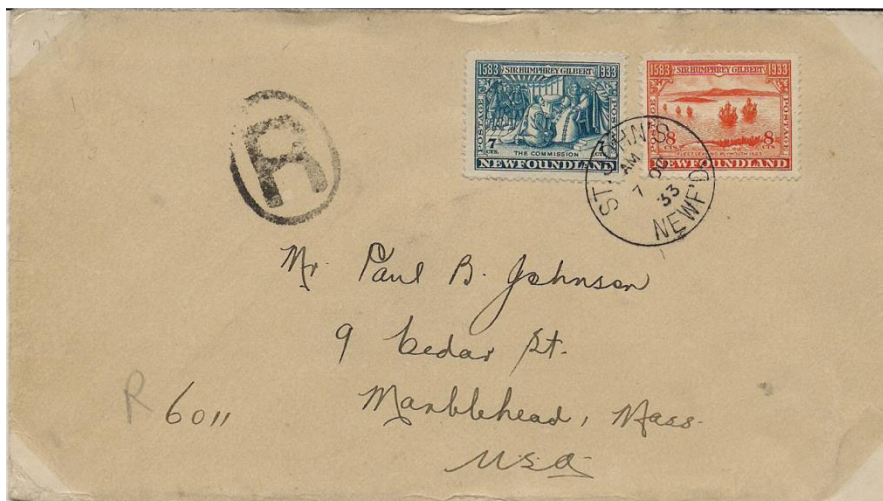 1583 SIR HUMPHREY GILBERT 1933
POSTAGE POSTAGE
7 CTS. 7
THE COMMISSION
NEWFOUNDLAND
1583 SIR HUMPHREY GILBERT 1933
POSTAGE POSTAGE
8 8
NEWFOUNDLAND
ST. JOHN'S
AM
7 OC
33
NEWF'D
R
Mr. Paul B. Johnson
9 Cedar St.
Marblehead, Mass.
U.S.A.
R 6011